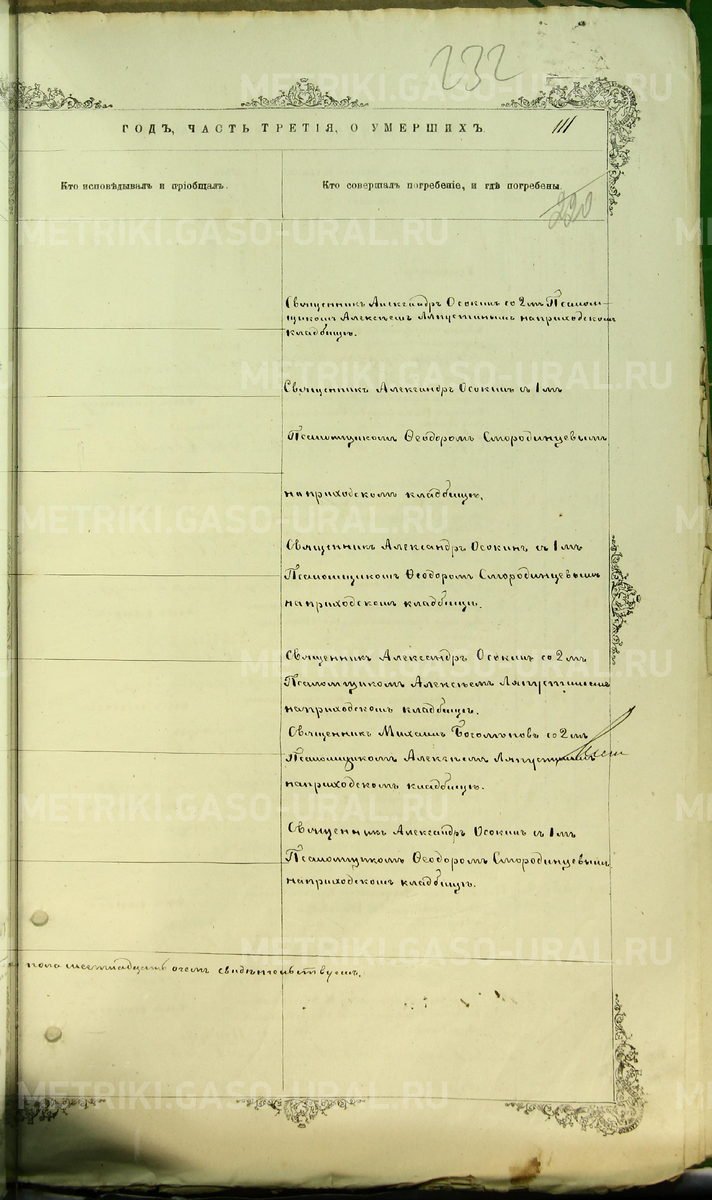 232
ГОДЪ, ЧАСТЬ ТРЕТІЯ, О УМЕРШИХЪ.
111
Кто исповѣдывалъ и пріобщалъ.
Кто совершалъ погребеніе, и гдѣ погребены.
220
Священникъ Александръ Осокинъ со 2мъ Псалом-
щикомъ Алексѣемъ Ляпустинымъ на приходскомъ
кладбищѣ.
Священникъ Александръ Осокинъ съ 1мъ
Псаломщикомъ Ѳеодоромъ Смородинцевымъ
на приходскомъ кладбищѣ.
Священникъ Александръ Осокинъ съ 1мъ
Псаломщикомъ Ѳеодоромъ Смородинцевымъ
на приходскомъ кладбищѣ.
Священникъ Александръ Осокинъ со 2мъ
Псаломщикомъ Алексѣемъ Ляпустинымъ
на приходскомъ кладбищѣ.
Священникъ Михаилъ со 2мъ
Псаломщикомъ Алексѣемъ Ляпустинымъ
на приходскомъ кладбищѣ.
Священникъ Александръ Осокинъ съ 1мъ
Псаломщикомъ Ѳеодоромъ Смородинцевымъ
на приходскомъ кладбищѣ.
пола шестнадцать о чемъ свидѣтельствуемъ.
METRIKI.GASO-URAL.RU